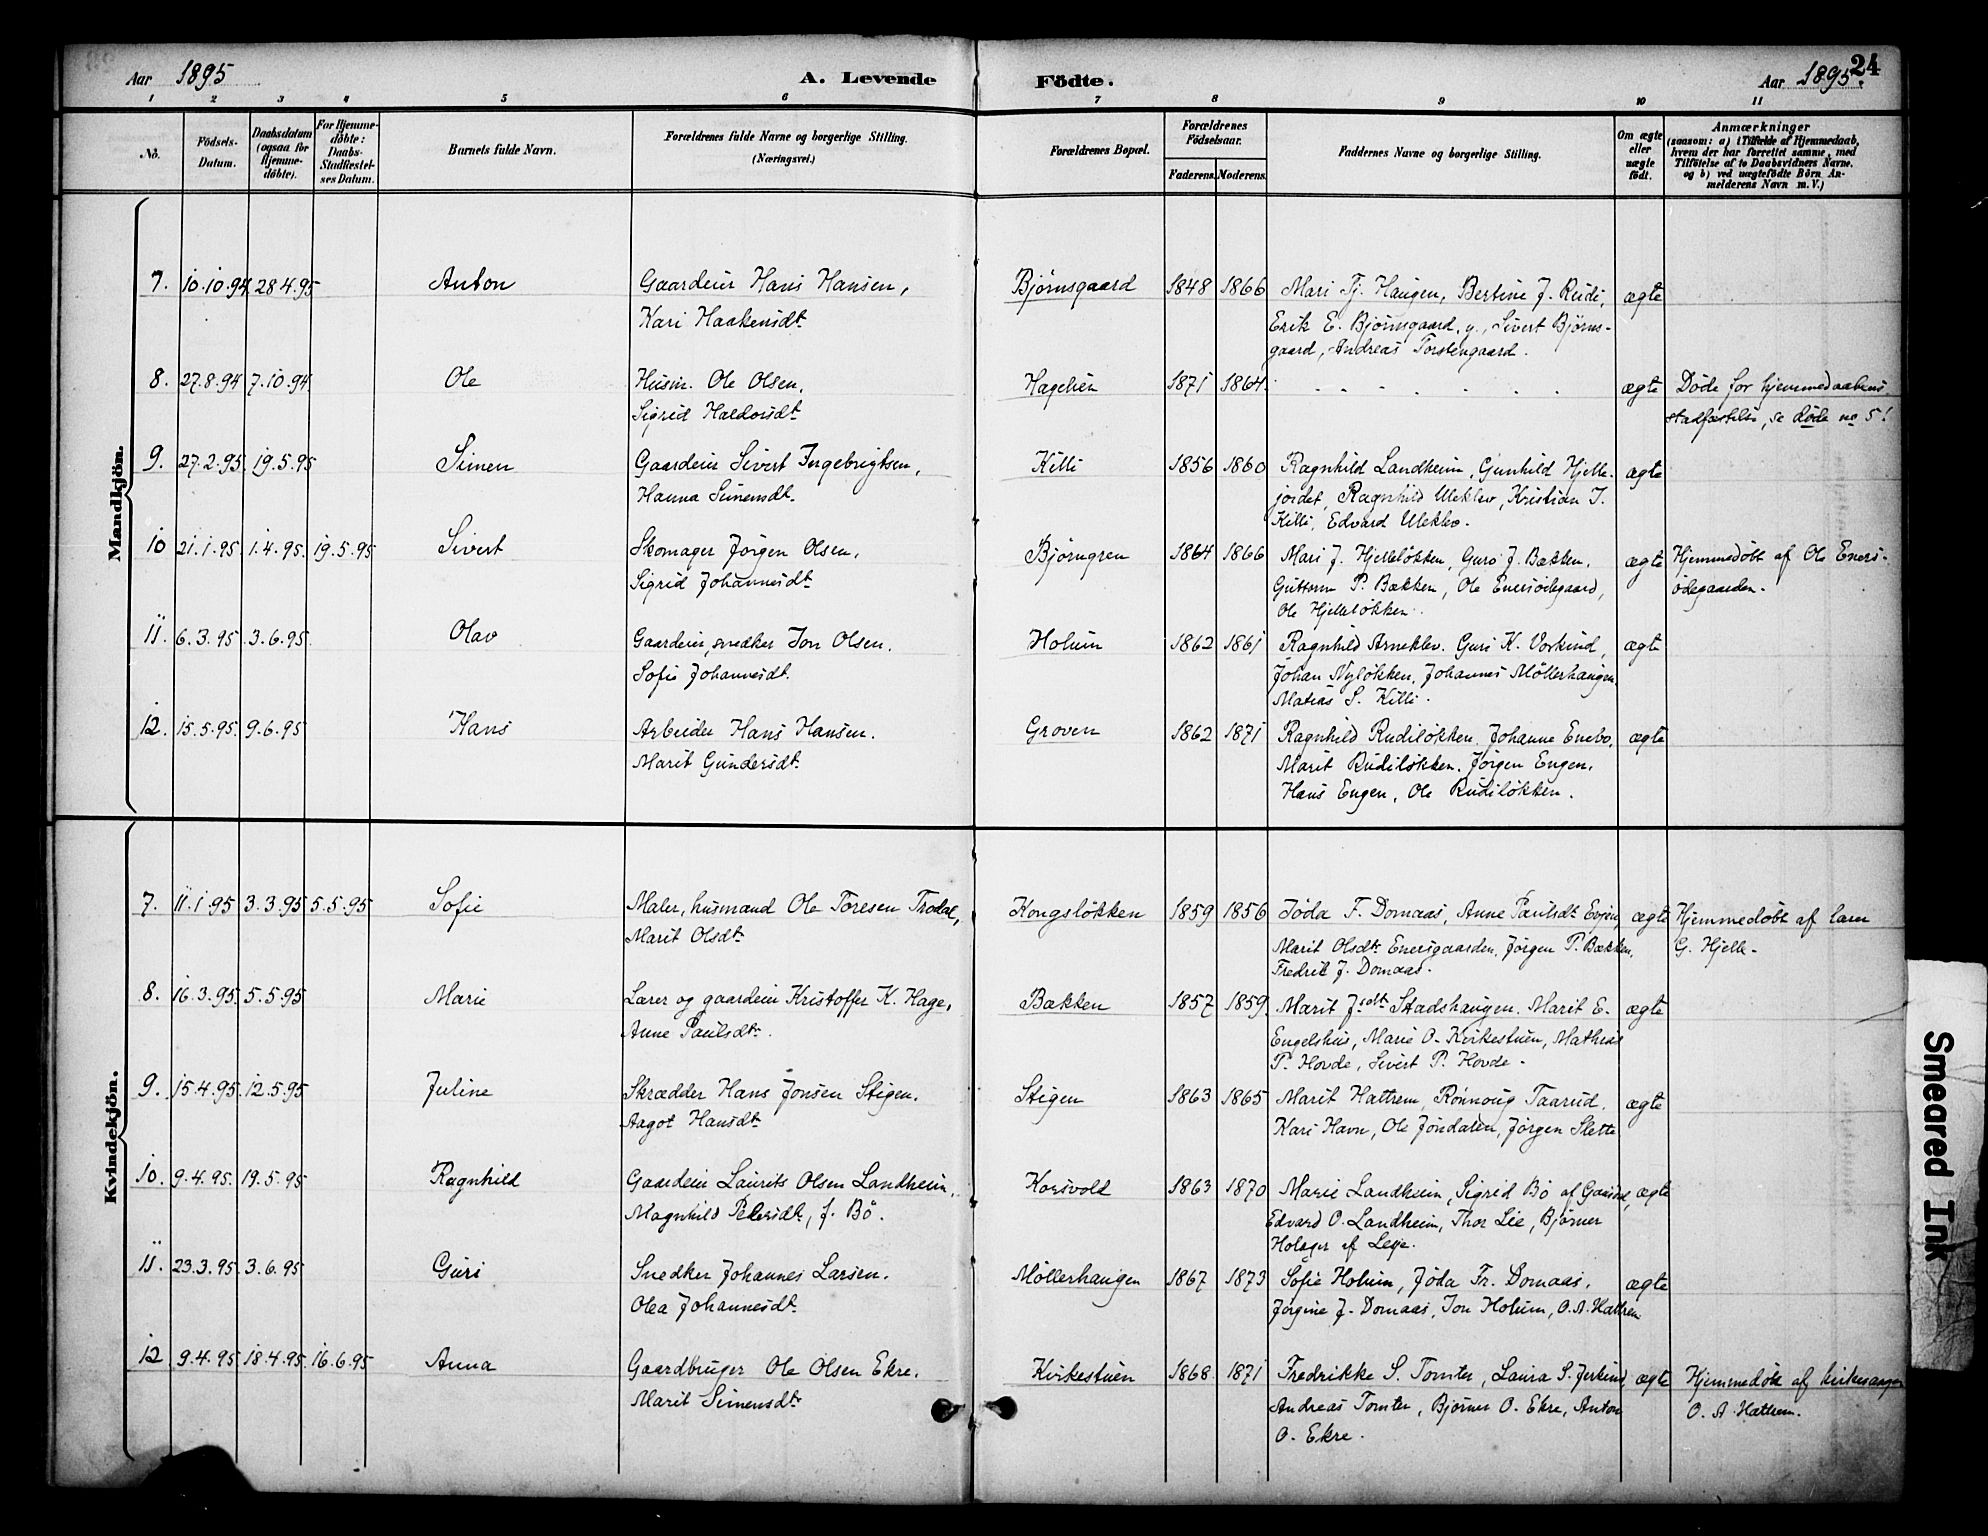 24
Aar 1895
A. Levende Födte.
Aar 1895.
1 2 3 4 5 6 7 8 9 10 11
No.
Födsels-
Datum.
Daabsdatum
(ogsaa for
Hjemme-
döbte).
For Hjemme-
döbte:
Daabs-
Stadfæstel-
ses Datum.
Barnets fulde Navn.
Forældrenes fulde Navne og borgerlige Stilling.
(Næringsvei.)
Forældrenes Bopæl.
Forældrenes
Födselsaar.
Faderens. Moderens.
Faddernes Navne og borgerlige Stilling.
Om ægte
eller
uægte
födt.
Anmærkninger
(saasom: a) i Tilfælde af Hjemmedaab,
hvem der har forrettet samme, med
Tilföielse af to Daabsvidners Navne,
og b) ved uægtefödte Börn An-
melderens Navn m.V.)
Mandkjön.
7. 10.10.94. 28.4.95 Anton Gaardeier Hans Hansen, Bjørnsgaard 1848 1866 Mari Tj. Haugen, Bertine J. Rudi, ægte
Kari Haakensdt. Erik E. Bjørnsgaard, y., Sivert Bjørns-
gaard, Andreas Torstengaard.
8. 27.8.94 7.10.94 Ole Husm. Ole Olsen, Hagelien 1871 1864. ægte Døde før hjemmedaabens
Sigrid Haldorsdt. stadfæstelse, se døde no 5!
9. 27.2.95. 19.5.95 Simen Gaardeier Sivert Ingebrigtsen, Killi 1856 1860 Ragnhild Landheim, Gunhild Hjelle- ægte
Hanna Simensdt. jordet, Ragnhild Uleklev, Kristian I.
Killi, Edvard Uleklev.
10 21.1.95. 1.4.95. 19.5.95 Sivert Skomager Jørgen Olsen, Bjørngren 1864 1866 Mari J. Hjelleløkken, Guro J. Bækken, ægte Hjemmedøbt af Ole Eners-
Sigrid Johannesdt. Guttorm P. Bækken, Ole Enersødegaard, ødegaarden.
Ole Hjelleløkken.
11. 6.3.95. 3.6.95. Olav Gaardeier, snedker Jon Olsen. Holum 1862 1861 Ragnhild Arneklev. Guri K. Vorkind, ægte
Sofie Johannesdt. Johan Nyløkken, Johannes Møllerhaugen,
Matias S. Killi.
12. 15.5.95. 9.6.95 Hans Arbeider Hans Hansen. Groven 1862 1871 Ragnhild Rudiløkken, Johanne Enebo, ægte
Marit Gundersdt. Marit Rudiløkken. Jørgen Engen,
Hans Engen, Ole Rudiløkken.
Kvindekjön.
7. 11.1.95 3.3.95 5.5.95 Sofie Maler, husmand Ole Toresen Trodal, Kongsløkken 1859 1856 Jøda F. Domaas, Anne Paulsdt. Evjen, ægte Hjemmedøbt af lærer
Marit Olsdt. Marit Olsdt. Enersgaarden, Jørgen P. Bækken, G. Hjelle.
Fredrik J. Domaas.
8. 16.3.95. 5.5.95 Marie Lærer og gaardeier Kristoffer K. Hage, Bækken 1857 1859. Marit J.sdt. Stadshaugen. Marit E. ægte
Anne Paulsdt. Engelshus, Marie O. Kirkestuen, Mathias
P. Hovde, Sivert P. Hovde.
9. 15.4.95. 12.5.95 Juline Skrædder Hans Jonsen Stigen. Stigen 1863 1865 Marit Hattrem, Rønnoug Taarud, ægte
Aagot Hansdt. Kari Havn, Ole Jøndalen, Jørgen Slette
10. 9.4.95. 19.5.95 Ragnhild Gaardeier Laurits Olsen Landheim, Korsvold 1863 1870 Marie Landheim, Sigrid Bø af Gausdal, ægte
Magnhild Petersdt., f. Bø. Edvard O. Landheim, Thor Lie, Bjørner
Holager af Lesje.
11. 23.3.95. 3.6.95 Guri Snedker Johannes Larsen. Møllerhaugen 1867 1873 Sofie Holum, Jøda Fr. Domaas, ægte
Olea Johannesdt. Jørgine J. Domaas, Jon Holum, O.A. Hattrem
12 9.4.95 18.4.95. 16.6.95 Anna Gaardbruger Ole Olsen Ekre. Kirkestuen 1868. 1871 Fredrikke S. Tomter, Laura S. Jerkind, ægte Hjemmedøbt af kirkesanger
Marit Simensdt. Andreas Tomter, Bjørner O. Ekre, Anton O. A. Hattrem.
O. Ekre.
Smeared Ink